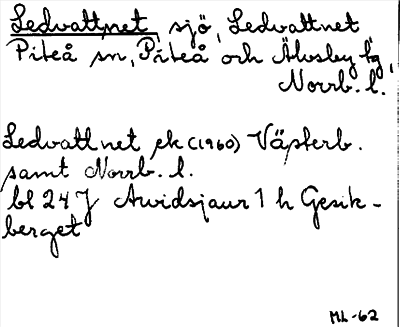 Ledvattnet, sjö, Ledvattnet
Piteå sn, Piteå och Älvsby tg,
Norrb. l.
Ledvattnet ek (1960) Västerb.
samt Norrb. l.
bl 24 J Arvidsjaur 1 h Gesik-
berget
ML-62